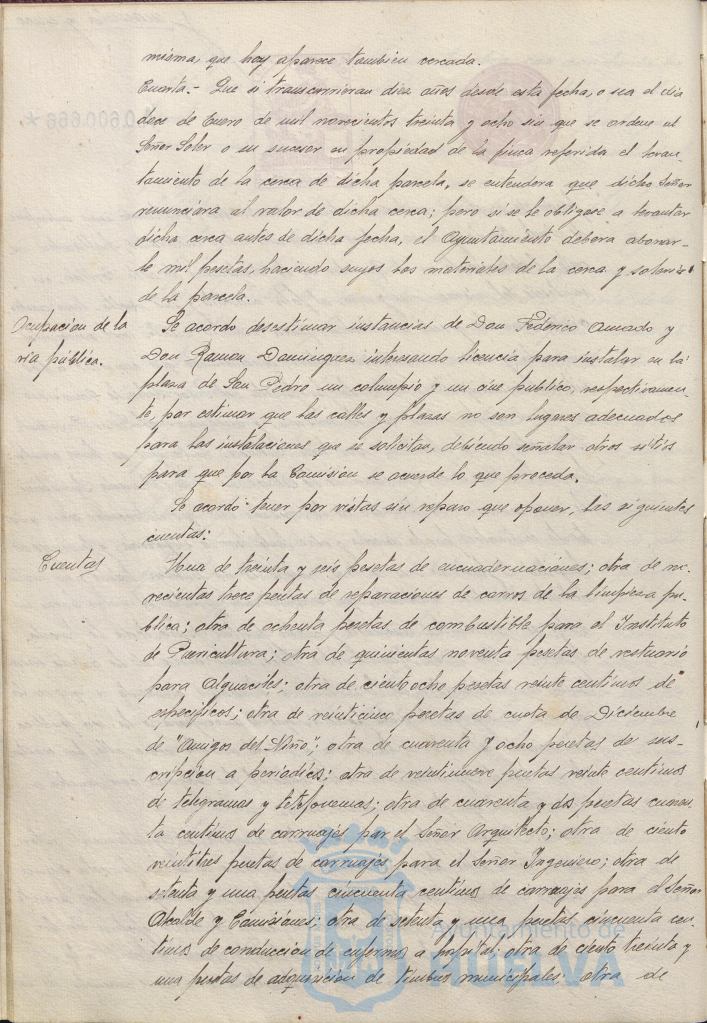 misma, que hoy aparece tambien cercada.
Cuarta.- Que si transcurrieran diez años desde esta fecha, o sea el dia
doce de Enero de mil novecientos treinta y ocho sin que se ordene al
Señor Soler o su sucesor en propiedad de la finca referida el levan-
tamiento de la cerca de dicha parcela, se entendera que dicho Señor
renunciara al valor de dicha cerca; pero si se le obligase a levantar
dicha cerca antes de dicha fecha, el Ayuntamiento debera abonar-
le mil pesetas, haciendo suyos los materiales de la cerca y solería
de la parcela.
Ocupacion de la
via pública.
Se acordo desestimar instancias de Don Federico Amado y
Don Ramon Dominguez interesando licencia para instalar en la
plaza de San Pedro un columpio y un cine publico, respectivamen-
te, por estimar que las calles y plazas no son lugares adecuados
para las instalaciones que se solicitan, debiendo señalar otros sitios
para que por la Comision se acuerde lo que proceda.
Se acordo tener por vistas sin reparo que oponer, las siguientes
cuentas:
Cuentas
Una de treinta y seis pesetas de encuadernaciones; otra de no-
vecientas trece pesetas de reparaciones de carros de la limpieza pu-
blica; otra de ochenta pesetas de combustible para el Instituto
de Puericultura; otra de quinientas noventa pesetas de vestuario
para Alguaciles; otra de ciento ocho pesetas veinte centimos de
especificos; otra de veinticinco pesetas de cuota de Diciembre
de "Amigos del Niño"; otra de cuarenta y ocho pesetas de sus-
cripcion a periodicos; otra de veintinueve pesetas veinte centimos
de telegramas y telefonemas; otra de cuarenta y dos pesetas cuaren-
ta centimos de carruajes par el Señor Arquitecto; otra de ciento
veintitres pesetas de carruajes para el Señor Ingeniero; otra de
setenta y una pesetas cincuenta centimos de carruajes para el Señor
Alcalde y Comisiones; otra de setenta y una pesetas cincuenta cen-
timos de conduccion de enfermos a hospital; otra de ciento treinta y
una pesetas de adquisición de timbres municipales; otra de
Ayuntamiento de
HUELVA